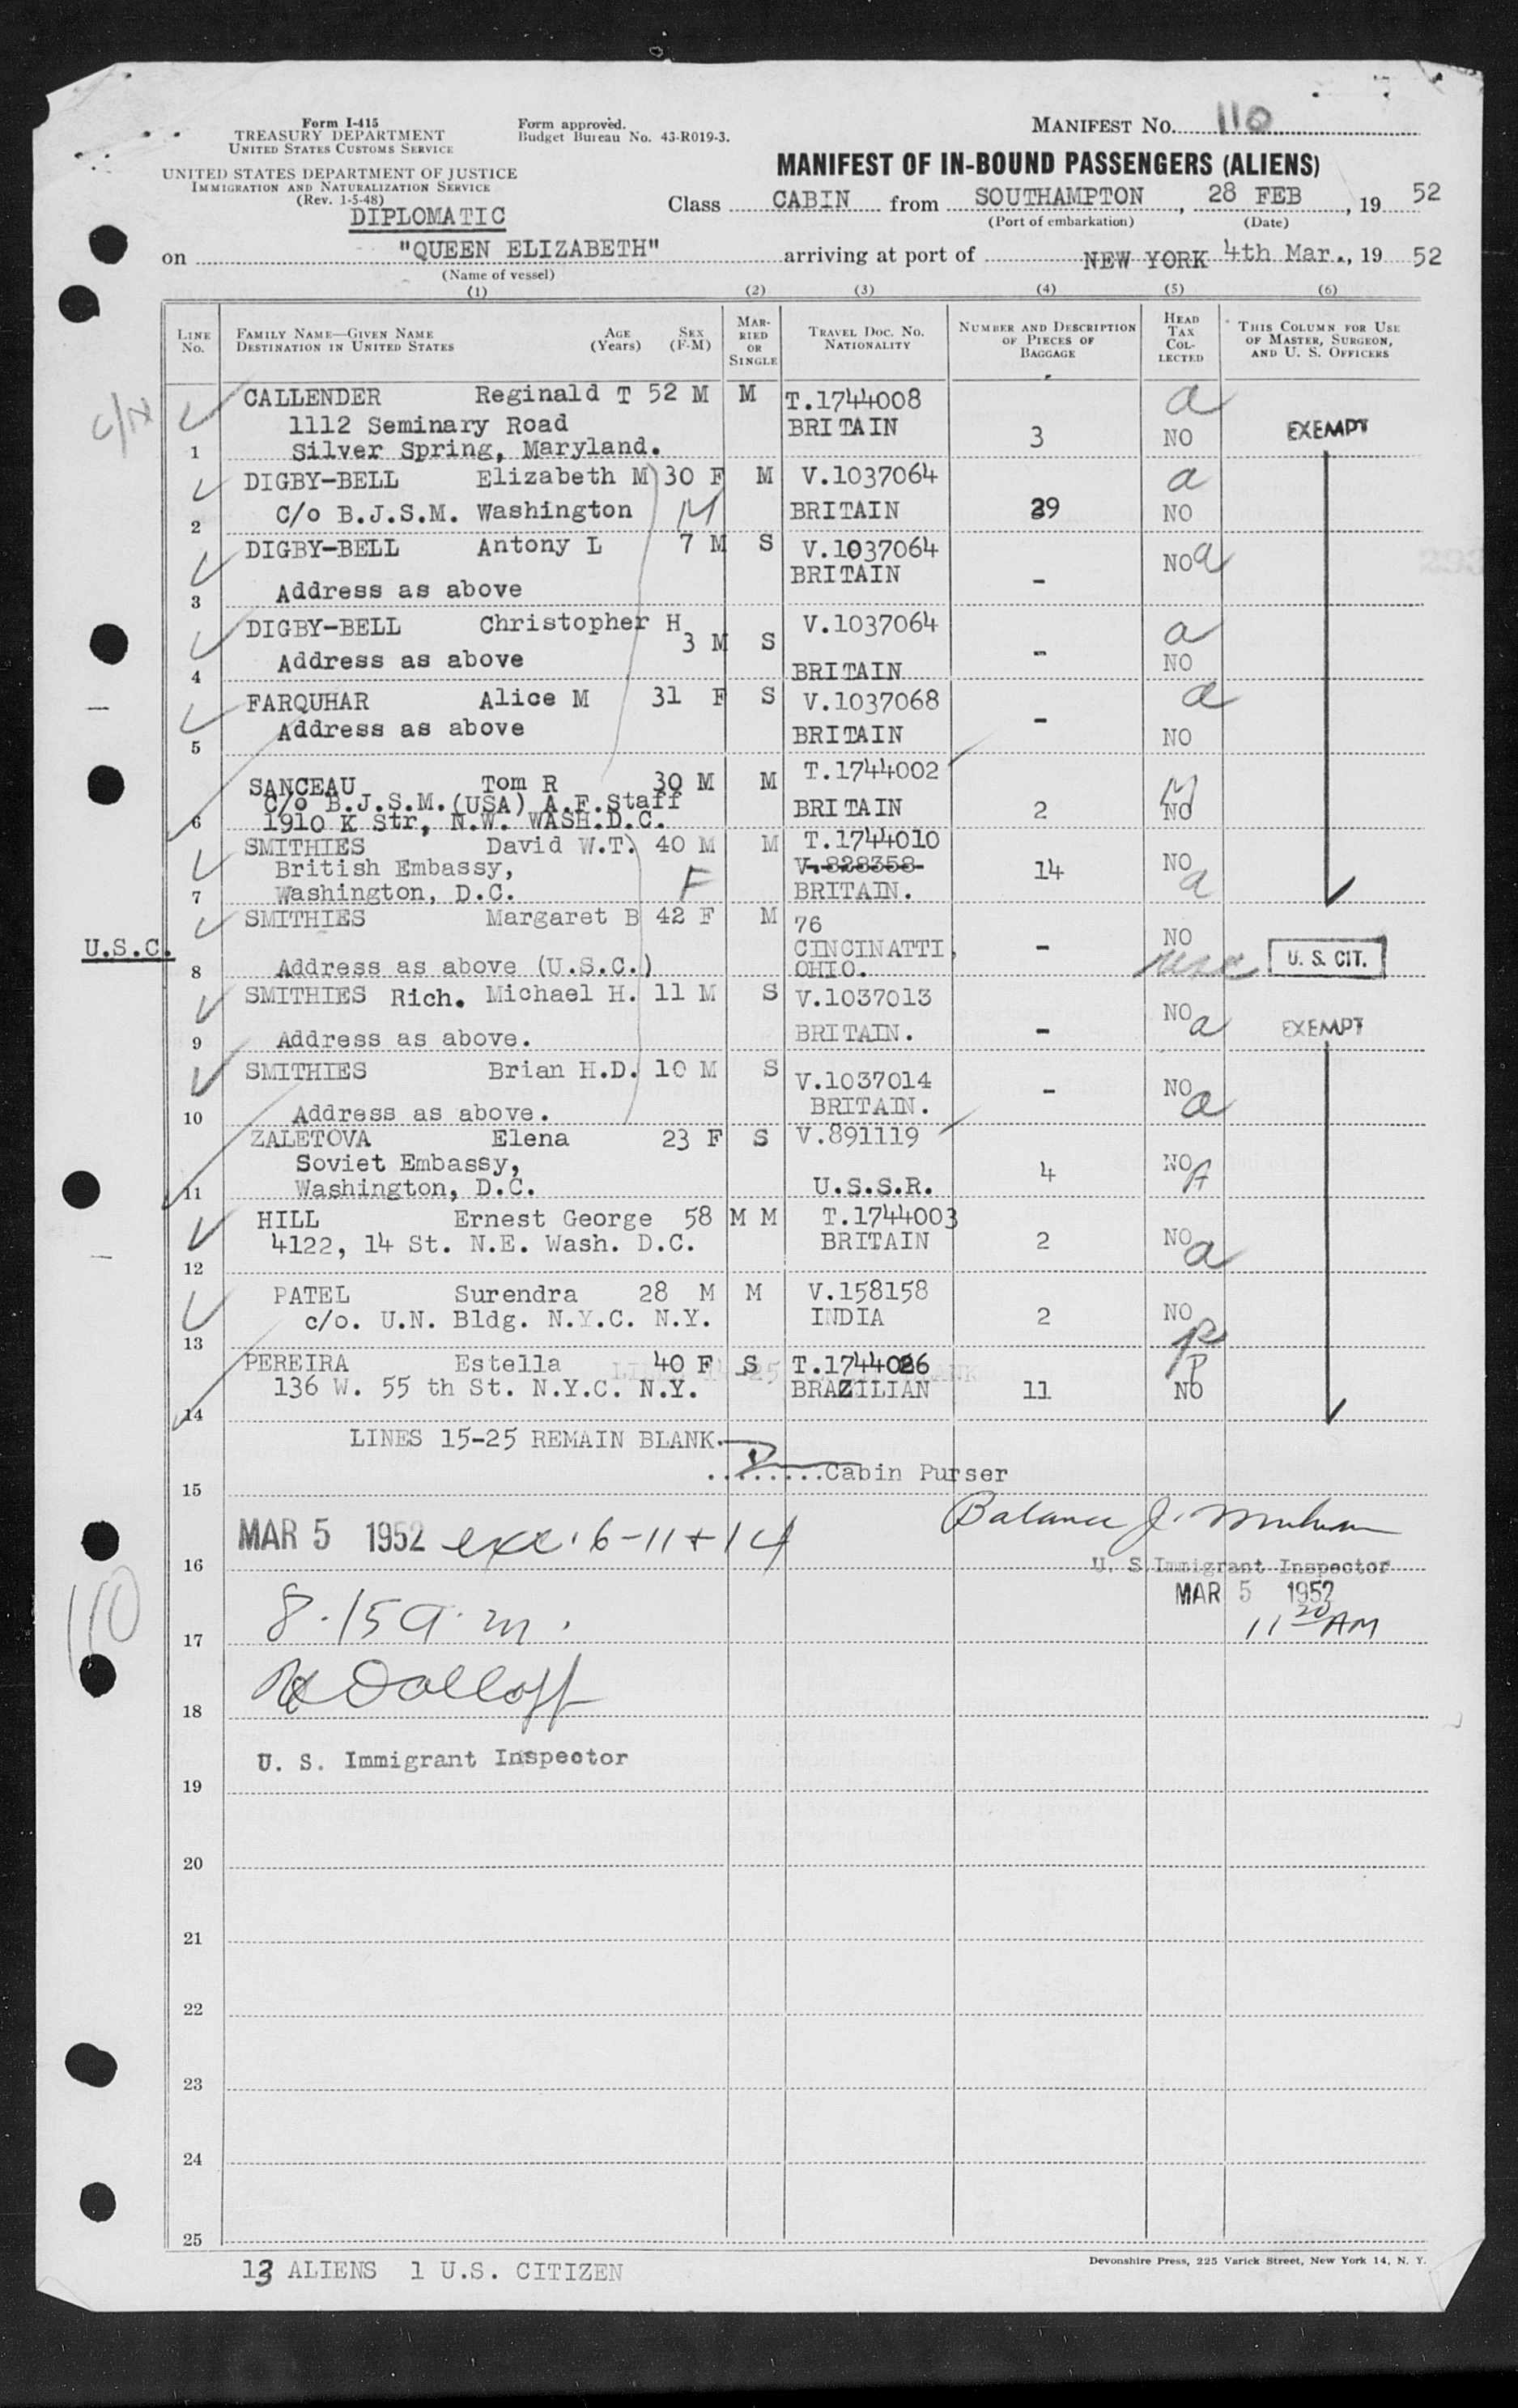 Form I-415
TREASURY DEPARTMENT
UNITED STATES CUSTOMS SERVICE
Form approved.
Budget Bureau No. 43-R019-3.
MANIFEST NO. 110
UNITED STATES DEPARTMENT OF JUSTICE
IMMIGRATION AND NATURALIZATION SERVICE
(Rev. 1-5-48)
MANIFEST OF IN-BOUND PASSENGERS (ALIENS)
DIPLOMATIC
Class CABIN from SOUTHAMPTON, 28 FEB, 19 52
(Port of embarkation) (Date)
on "QUEEN ELIZABETH" arriving at port of NEW YORK 4th Mar., 19 52
(Name of vessel)
(1) (2) (3) (4) (5) (6)
LINE NO.
FAMILY NAME—GIVEN NAME AGE (Years) SEX (F-M)
DESTINATION IN UNITED STATES
MARRIED OR SINGLE
TRAVEL DOC. NO. NATIONALITY
NUMBER AND DESCRIPTION OF PIECES OF BAGGAGE
HEAD TAX COLLECTED
THIS COLUMN FOR USE OF MASTER, SURGEON, AND U. S. OFFICERS
CALLENDER Reginald T 52 M M T.1744008 a
1112 Seminary Road BRITAIN 3 NO EXEMPT
1 Silver Spring, Maryland.
DIGBY-BELL Elizabeth M 30 F M V.1037064 a
2 C/o B.J.S.M. Washington M BRITAIN 39 NO
DIGBY-BELL Antony L 7 M S V.1037064 NO a
BRITAIN -
3 Address as above
DIGBY-BELL Christopher H 3 M S V.1037064 a
4 Address as above BRITAIN - NO
FARQUHAR Alice M 31 F S V.1037068 a
5 Address as above BRITAIN - NO
SANCEAU Tom R 30 M M T.1744002 M
C/o B.J.S.M.(USA) A.F.Staff BRITAIN 2 NO
6 1910 K Str, N.W. WASH.D.C.
SMITHIES David W.T. 40 M M T.1744010
British Embassy, F V.828358 14 NO a
7 Washington, D.C. BRITAIN.
SMITHIES Margaret B 42 F M 76 NO
U.S.C. CINCINATTI, - usc U. S. CIT.
8 Address as above (U.S.C.) OHIO.
SMITHIES Rich. Michael H. 11 M S V.1037013 NO a EXEMPT
9 Address as above. BRITAIN. -
SMITHIES Brian H.D. 10 M S V.1037014 - NO a
10 Address as above. BRITAIN.
ZALETOVA Elena 23 F S V.891119
Soviet Embassy, 4 NO A
11 Washington, D.C. U.S.S.R.
HILL Ernest George 58 M M T.1744003
4122, 14 St. N.E. Wash. D.C. BRITAIN 2 NO a
12
PATEL Surendra 28 M M V.158158
c/o. U.N. Bldg. N.Y.C. N.Y. INDIA 2 NO
13
PEREIRA Estella 40 F S T.1744026 P
136 W. 55 th St. N.Y.C. N.Y. BRAZILIAN 11 NO
14
LINES 15-25 REMAIN BLANK
........Cabin Purser
15
MAR 5 1952 exc. 6-11+14
Balance J.
16 U. S Immigrant Inspector
MAR 5 1952
110 8.15 a.m. 11 20 AM
17
Dolloff
18
U. S. Immigrant Inspector
19
20
21
22
23
24
25
13 ALIENS 1 U.S. CITIZEN
Devonshire Press, 225 Varick Street, New York 14, N. Y.